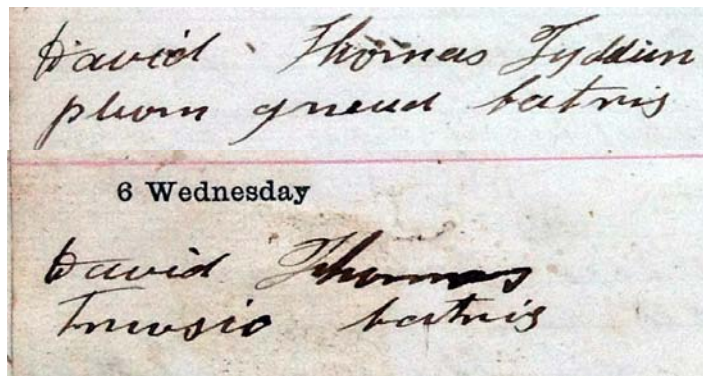 David Thomas Tyddun
gneud batris
6 Wednesday
David Thomas
Trwsio batris